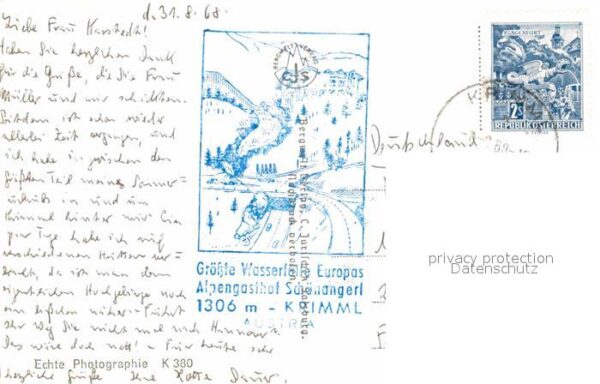 d. 31. 8. 68.
Liebe Frau Karstedt!
Haben Sie herzlichen Dank
für die Grüße, die Sie Frau
Müller und mir schickten.
Seitdem ist schon wieder
allerlei Zeit vergangen, und
ich habe inzwischen den
größten Teil meines Sommer-
urlaubs in und um
Krimml hinter mir. Ein
paar Tage habe ich auf
verschiedenen Hütten
da ist man dem
eigentlichen Hochgebirge noch
ein bißchen näher. Führt
Ihr Weg Sie nicht mal nach Hannover?
Das wäre doch nett! - Für heute sehr
herzliche Grüße Ihre Lotte
Echte Photographie K 380
Größte Wasserfälle Europas
Alpengasthof Schönangerl
1306 m - KRIMML
AUSTRIA
KLAGENFURT
2S
REPUBLIK ÖSTERREICH
Deutschland
privacy protection
Datenschutz